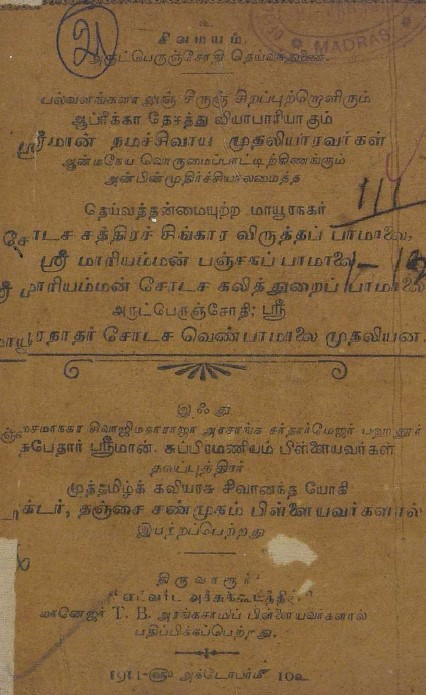 21
MADRAS
சிவமயம்.
அருட்பெருஞ்சோதி
பல்வளங்களா லுஞ் சீருஞ் சிறப்புற்றொளிரும்
ஆப்ரிக்கா தேசத்து வியாபாரியாகும்
ஸ்ரீமான் நமச்சிவாய முதலியாரவர்கள்
ஆன்மநேய வொருமைப்பாட்டிற்கிணங்கும்
அன்பின்முதிர்ச்சியாலமைத்த
தெய்வத்தன்மையுற்ற மாயூரநகர்
சோடச சத்திரச் சிங்கார விருத்தப் பாமாலை,
ஸ்ரீ மாரியம்மன் பஞ்சகப் பாமாலை
ஸ்ரீ மாரியம்மன் சோடச கலித்துறைப் பாமாலை
அருட்பெருஞ்சோதி; ஸ்ரீ
மாயூரநாதர் சோடச வெண்பாமாலை முதலியன.
இஃது
சிவாஜிமகாராஜா அரசாங்க சர்தார்மேஜர் பஹதூர்
சுபேதார் ஸ்ரீமான். சுப்பிரமணியம் பிள்ளையவர்கள்
தவப்புத்திரர்
முத்தமிழ்க் கவியரசு சிவானந்த யோகி
டாக்டர், தஞ்சை சண்முகம் பிள்ளையவர்களால்
இயற்றப்பெற்றது
திருவாரூர்
மானேஜர் T. B. அரங்கசாமிப் பிள்ளையவர்களால்
பதிப்பிக்கப்பெற்றது.
1911-௵ அக்டோபர்௴ 10௳